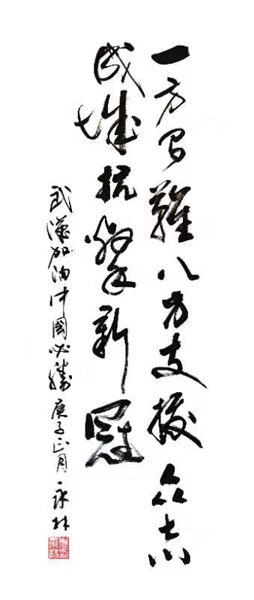 一方有難八方支援众志
成城抗擊新冠
武漢加油中國必勝庚子正月永林